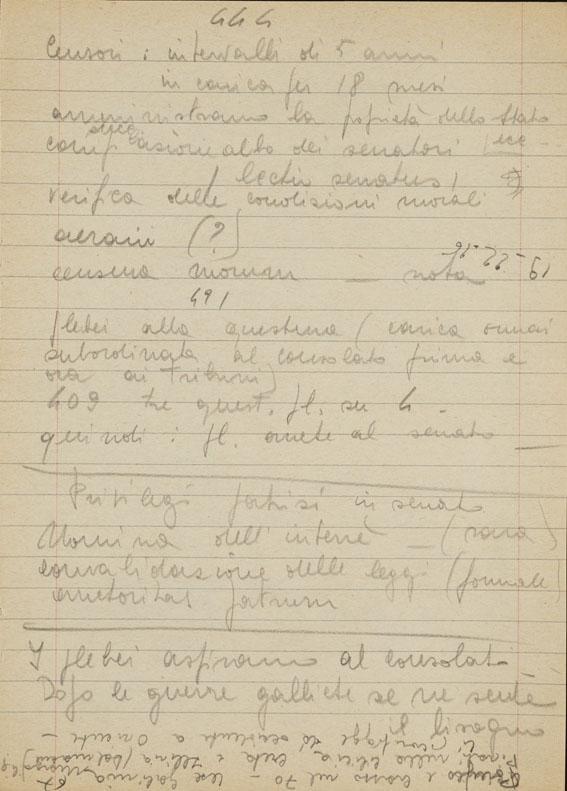 444
Censori : intervalli di 5 anni
in carica per 18 mesi
amministrano la proprietà dello Stato
dei senatori
(lectio senatus)
verifica delle condizioni morali
aerarii (?)
censura morum — nota
19-22-91
421
plebei alla questura (carica ormai
subordinata al consolato prima e
ora ai Tribuni)
409 tre quest. pl. su 4 -
quindi : pl. anche al senato —
Privilegi patrizi in senato
Nomina dell'interré — (rara)
convalidazione delle leggi (formale)
auctoritas patrum
I plebei aspirano al consolato
Dopo le guerre galliche se ne sente
il bisogno
Pompeo e Crasso nel 70 — lex Gabinia 67
Pirati nella Cilicia, Creta e Illiria (Dalmazia)
da occidente a Oriente —